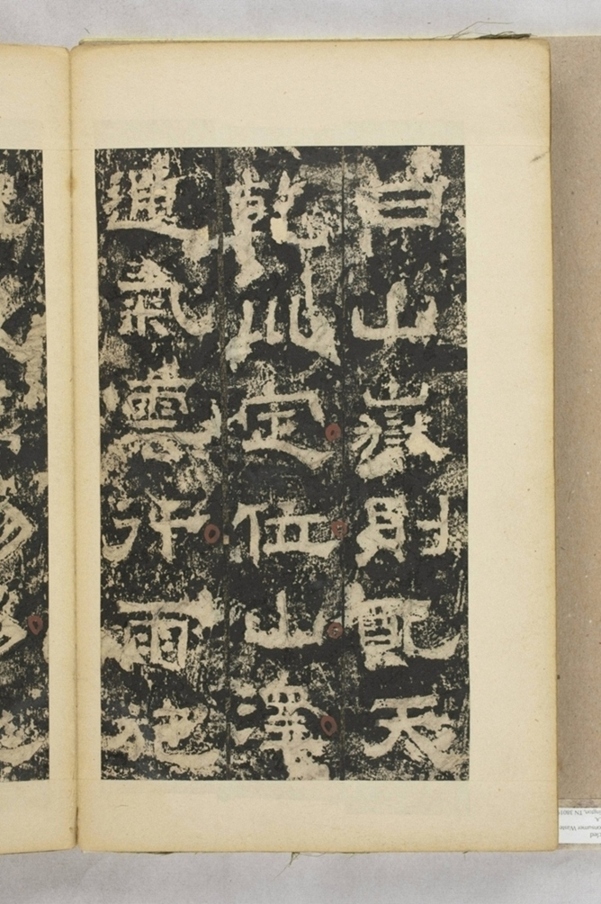 曰山嶽則配天
乾巛定位山澤
通氣雲行雨施